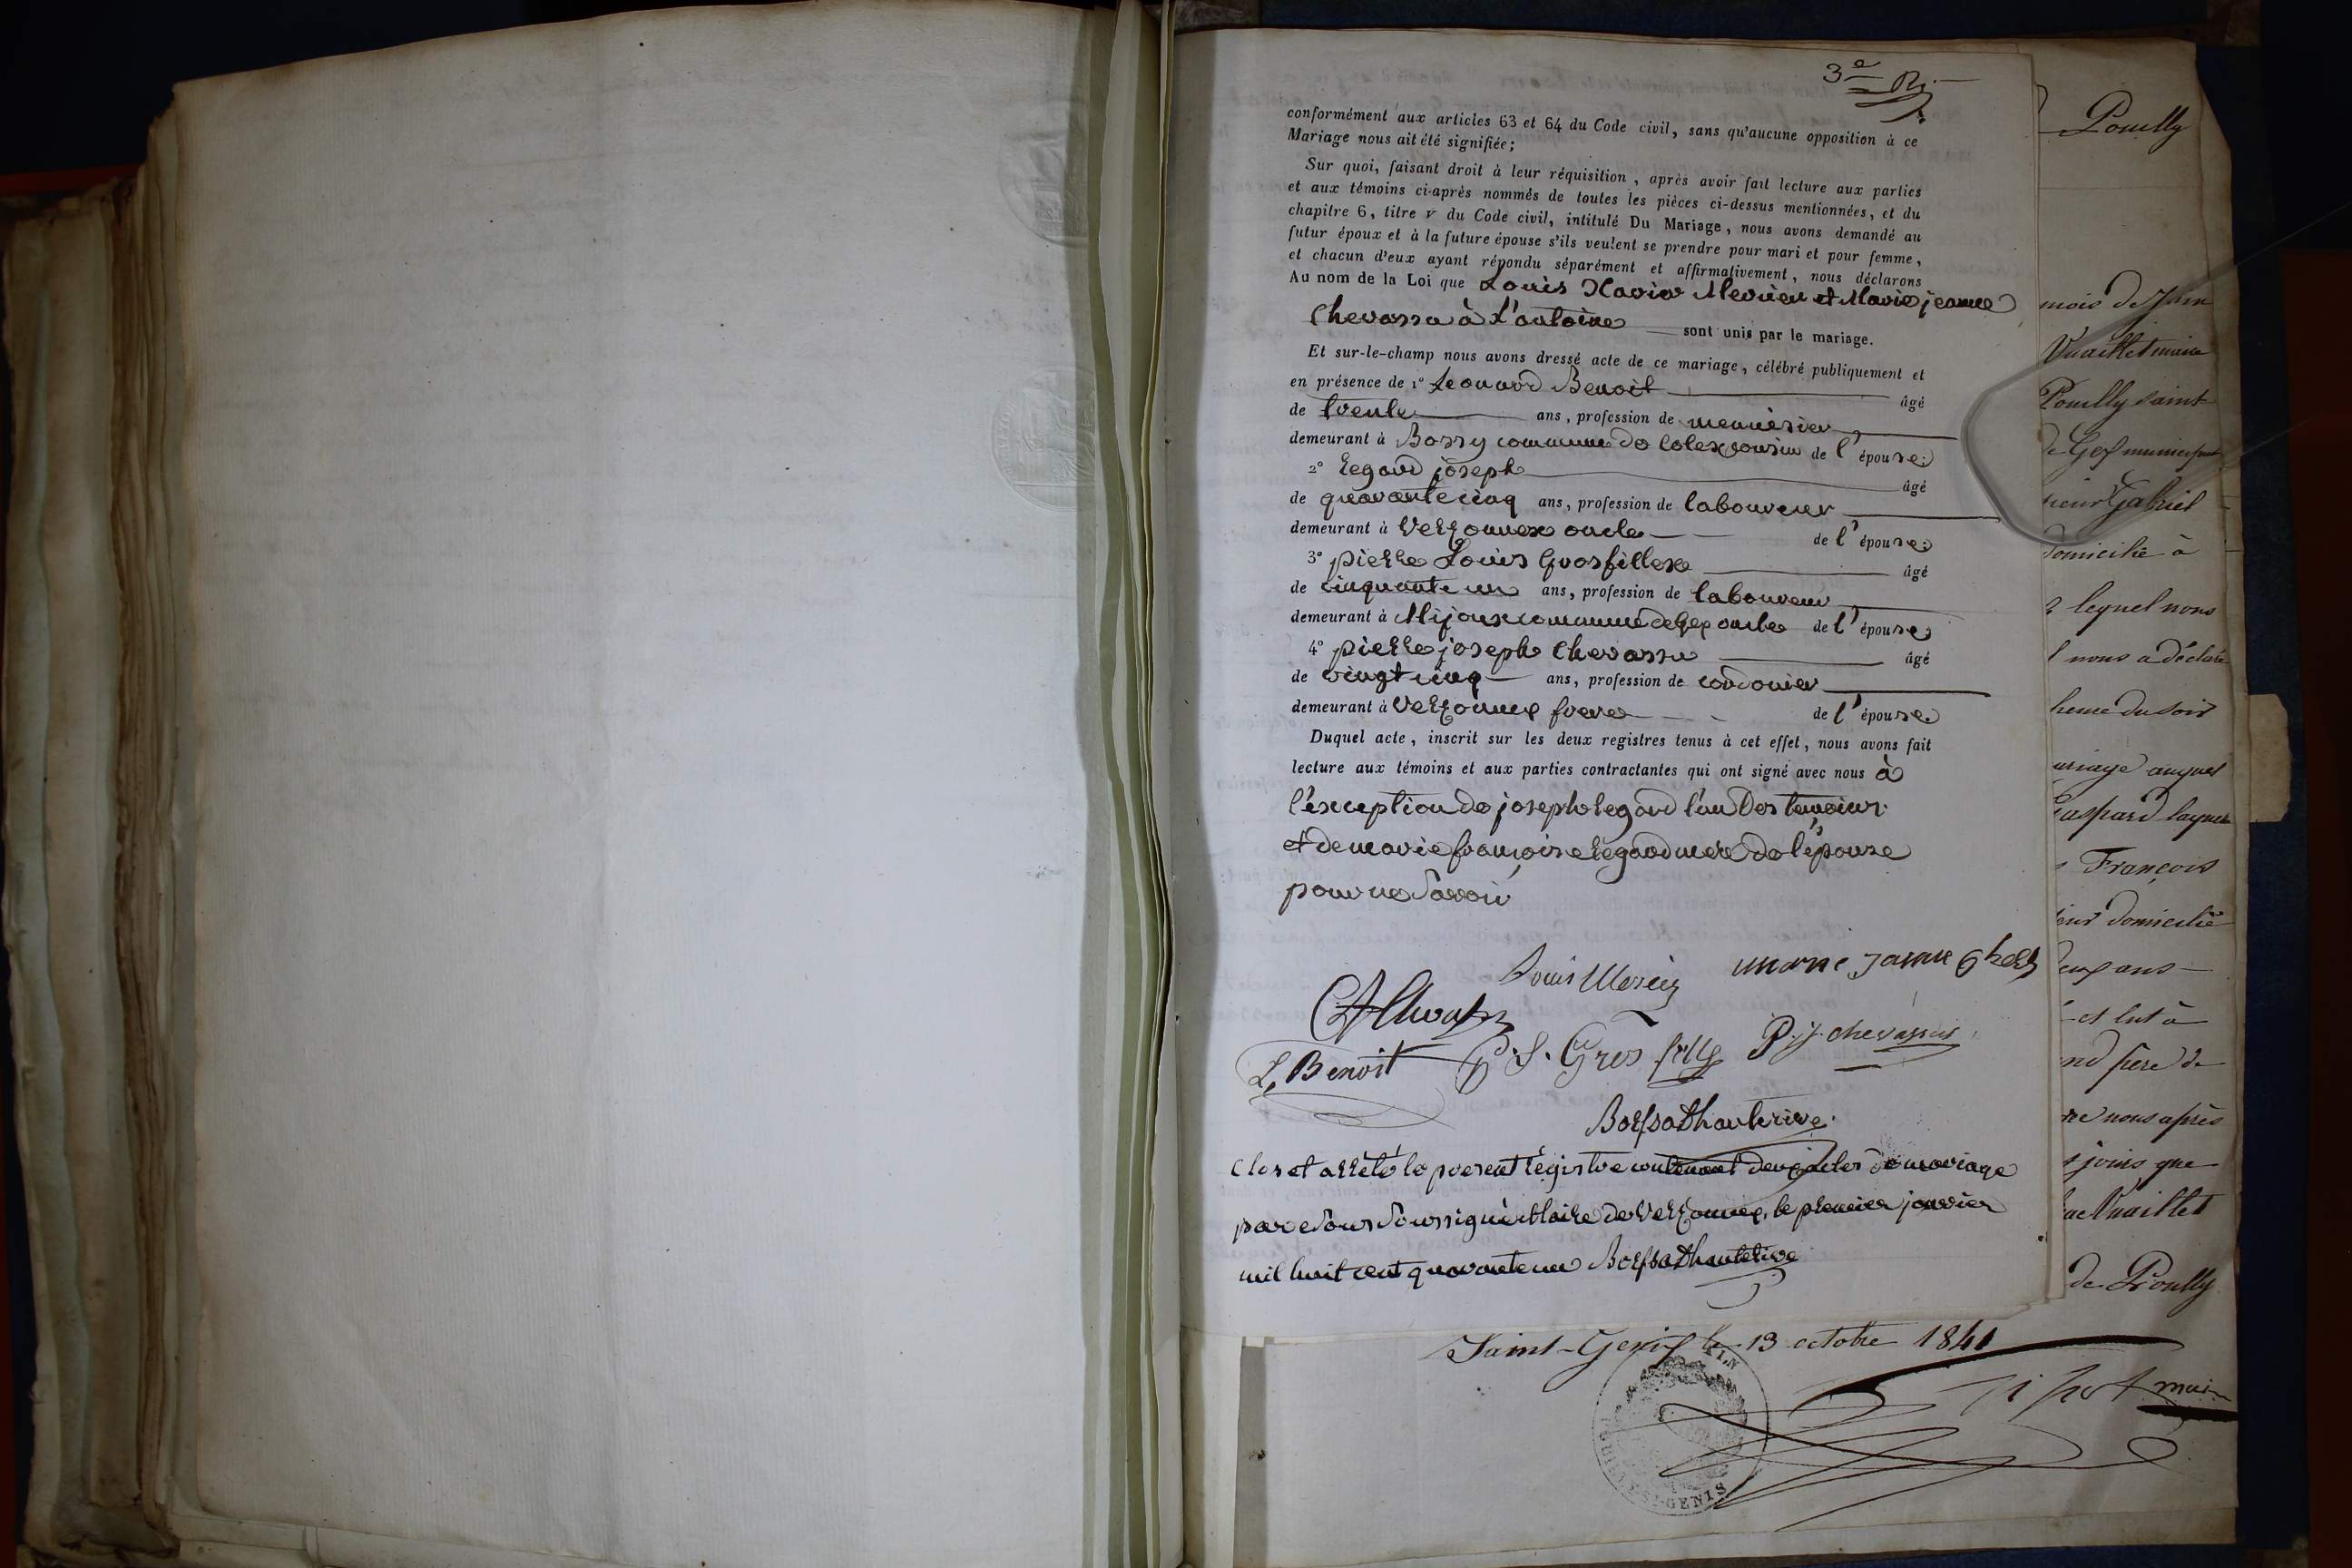 3e
conformément aux articles 63 et 64 du Code civil, sans qu'aucune opposition à ce
Mariage nous ait été signifiée;
Sur quoi, faisant droit à leur réquisition, après avoir fait lecture aux parties
et aux témoins ci-après nommés de toutes les pièces ci-dessus mentionnées, et du
chapitre 6, titre v du Code civil, intitulé Du Mariage, nous avons demandé au
futur époux et à la future épouse s'ils veulent se prendre pour mari et pour femme,
et chacun d'eux ayant répondu séparément et affirmativement, nous déclarons
Au nom de la Loi que Louis Xavier Mercier et Marie jeanne
Chevassu à l'antoine sont unis par le mariage.
Et sur-le-champ nous avons dressé acte de ce mariage, célébré publiquement et
en présence de 1º Leonard Benoit âgé
de trente ans, profession de menuisier
demeurant à Bossy commune de Colex cousin de l'épouse;
2º Regard joseph âgé
de quarante cinq ans, profession de laboureur
demeurant à Verzonnex oncle de l'épouse;
3º pierre Louis Grosfillex âgé
de cinquante un ans, profession de laboureur
demeurant à Mijoux commune de Gex oncle de l'épouse
4º pierre joseph Chevassu âgé
de vingt cinq ans, profession de cordonier
demeurant à Verzonnex frere de l'épouse
Duquel acte, inscrit sur les deux registres tenus à cet effet, nous avons fait
lecture aux témoins et aux parties contractantes qui ont signé avec nous à
l'exception de joseph regard l'un des temoins
et de marie françoise Regard mere de l'épouse
pour ne savoir
Louis Mercier marie Janne
L, Benoit P. J. chevassus
Clos et arrêté le present régistre contenant deux actes de mariage
par Nous soussigné Maire de Verzonnex, le premier janvier
mil huit cent quarante un
Saint-Genix le 13 octobre 1841
ST-GENIS
Pouilly
mois de Juin
Vuaillet maire
Pouilly saint
de Gex
sieur Gabriel
domicilié à
lequel nous
nous a déclaré
heure du soir
auquel
François
domicilié
ans
et lut à
père de
nous après
que
Vuaillet
de Prouilly